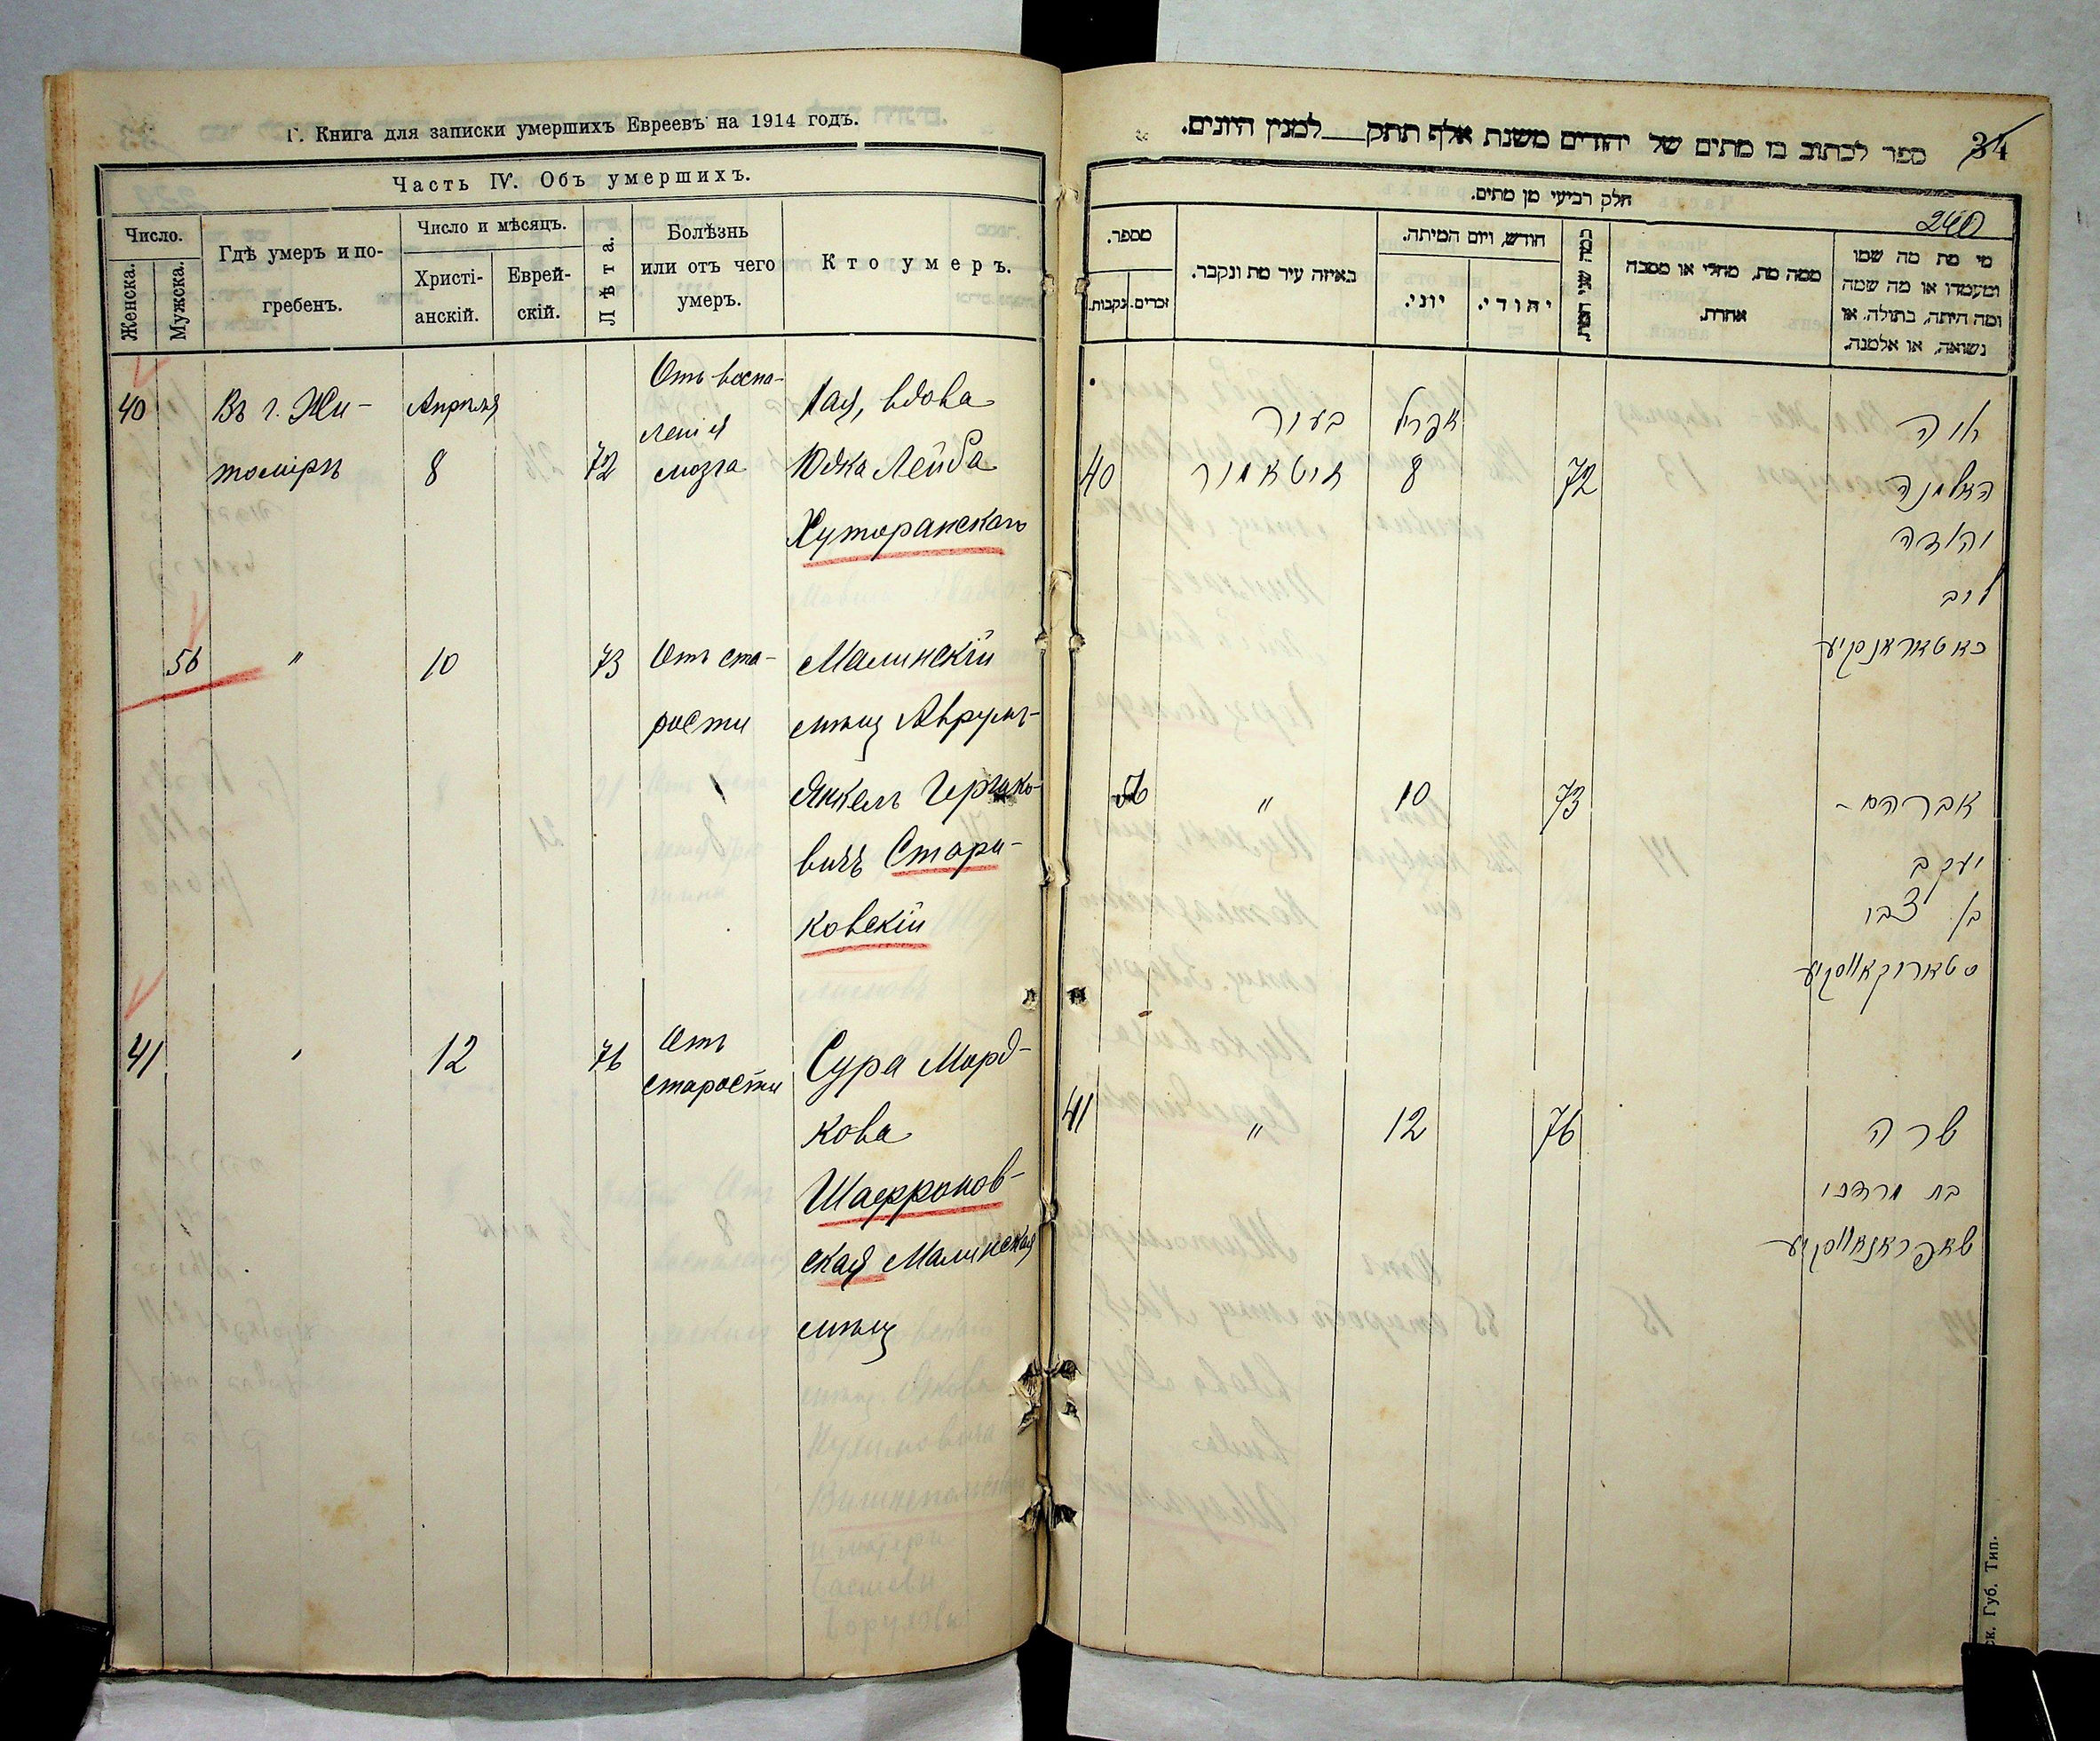 Г. Книга для записки умершихъ Евреевъ на 1914 годъ.
Часть IV. Объ умершихъ.
Число.
Женска.
Мужска.
Гдѣ умеръ и по-
гребенъ.
Число и мѣсяцъ.
Христі-
анскій.
Еврей-
скій.
Лѣта.
Болѣзнь
или отъ чего
умеръ.
Кто умеръ.
40
Въ г. Жи-
томірѣ
Апрѣля
8
72
Отъ воспа-
ленія
мозга
Хая, вдова
Юдка Лейба
Хуторанскаго
56
"
10
73
Отъ ста-
рости
Малинскій
мѣщ Аврумъ-
Янкель
вичъ Стари-
ковскій
41
"
12
76
Отъ
старости
Сура Морд-
кова
Шафронов-
ская Малинская
мѣщ
34
ספר לכתוב בו מתים של יהודים משנת אלף תתק___למנין היונים.
חלק רביעי מן מתים.
240
מספר.
נקבות.
זכרים.
באיזה עיר מת ונקבר.
חודש, ויום המיתה.
יוני.
יהודי.
כמה שני המת.
ממה מת, מחלי או מסבה
אחרת.
מי מת מה שמו
ומעמדו או מה שמה
ומה היתה, בתולה, או
נשואה, או אלמנה.
40
בעיר
זיטאמיר
אפריל
8
72
חיה
האלמנה
יהודה
ליב
כאטאראנסקיע
56
"
10
73
אברהם-
יעקב
בן צבי
סטאריקאווסקיע
41
"
12
76
שרה
בת מרדכי
שאפראנאווסקיע
ск. Губ. Тип.